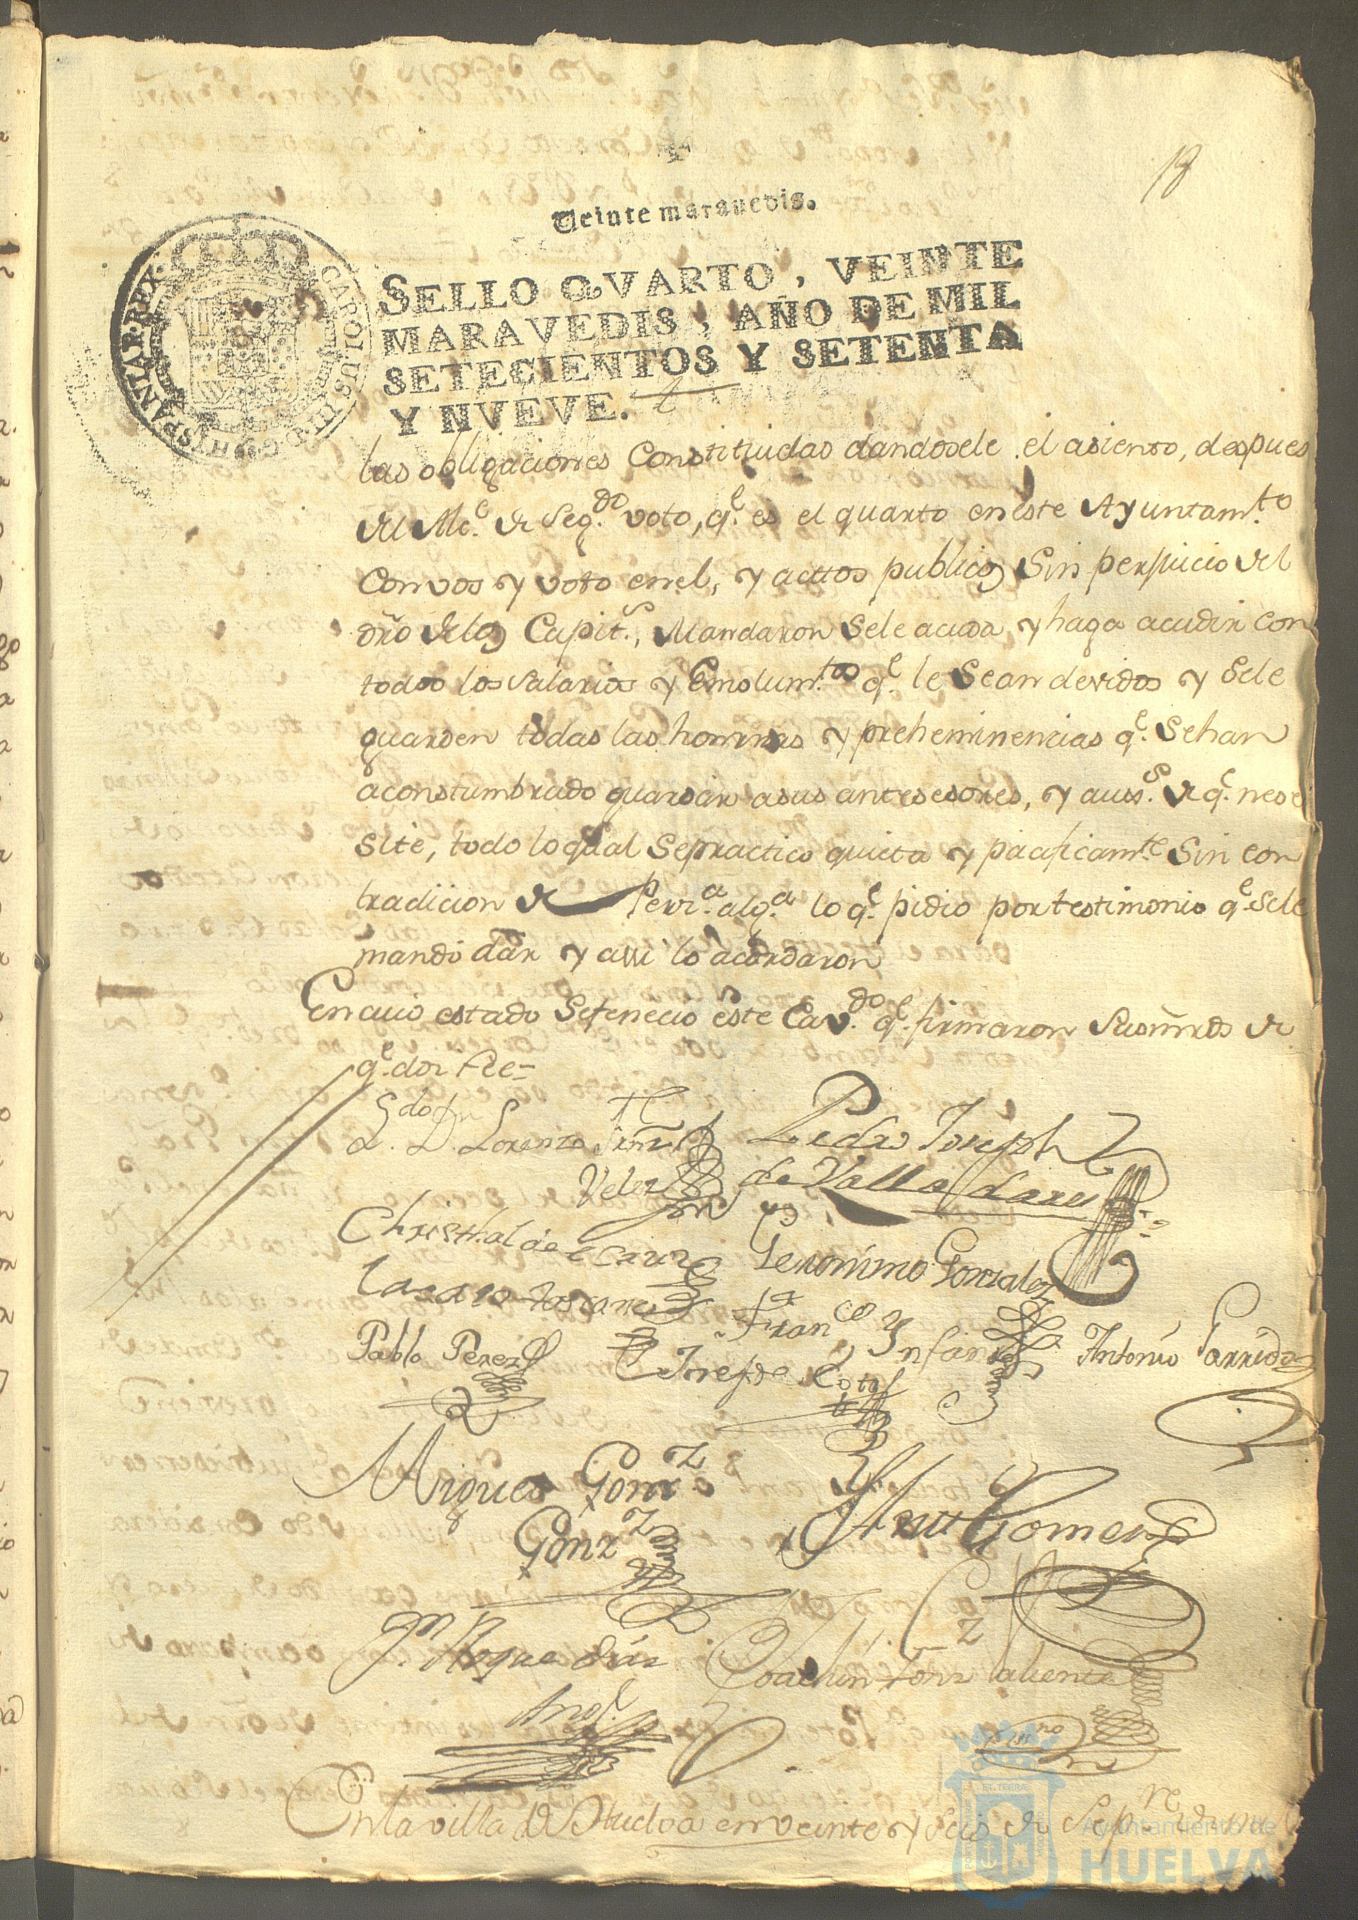 18
Veinte maravedis.
SELLO QVARTO, VEINTE
MARAVEDIS, AÑO DE MIL
SETECIENTOS Y SETENTA
Y NVEVE.
CAROLUS III D G HISPANIAR REX
las obligaciones Constituidas dandosele el asiento, despues
del Alc.e de Seg.do voto, q.e es el quarto en este Ayuntam.to
Con vos y voto en el, y actos publicos Sin perjuicio del
dro de los Capit.s, Mandaron Sele acuda, y haga acudir con
todos los Salarios y Emolum.tos q.e le Sean devidos y Sele
guarden todas las honrras y preheminencias q.e Sehan
acostumbrado guardar asus antesesores, y auss.s de q.e nese
site, todo lo qual Sepractico quieta y pacificam.te Sin con
tradicion de Perz.a alg.a lo q.e pidio por testimonio q.e Sele
mandó dar y assi lo acordaron
En cuio estado Sefenecio este Cav.do q.e firmaron Sus mrds de
q.e doi fee=
L.do Dn Lorenzo
Velez
Pedro Joseph
de Valladares
Christhal de la Cruz
Geronimo Gonzalez
Lazaro toscano
Fran.co Ynfante
Antonio Garrido
Pablo Perez
Josefde Cota
Miguel Gonz
Gonz
Gomez
Jn Roque Diaz
Joachin Gonz Valiente
En la villa de Huelva en veinte y Seis de Sep.re de mil
Ayuntamiento de
HUELVA